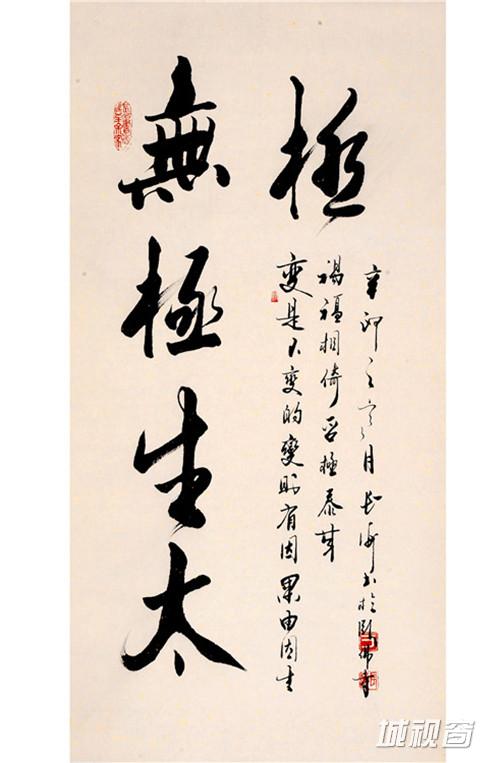 無極生太
極
变是不变的變所有因果由因生
禍福相倚否極泰
辛卯之月书於卧佛
城视窗